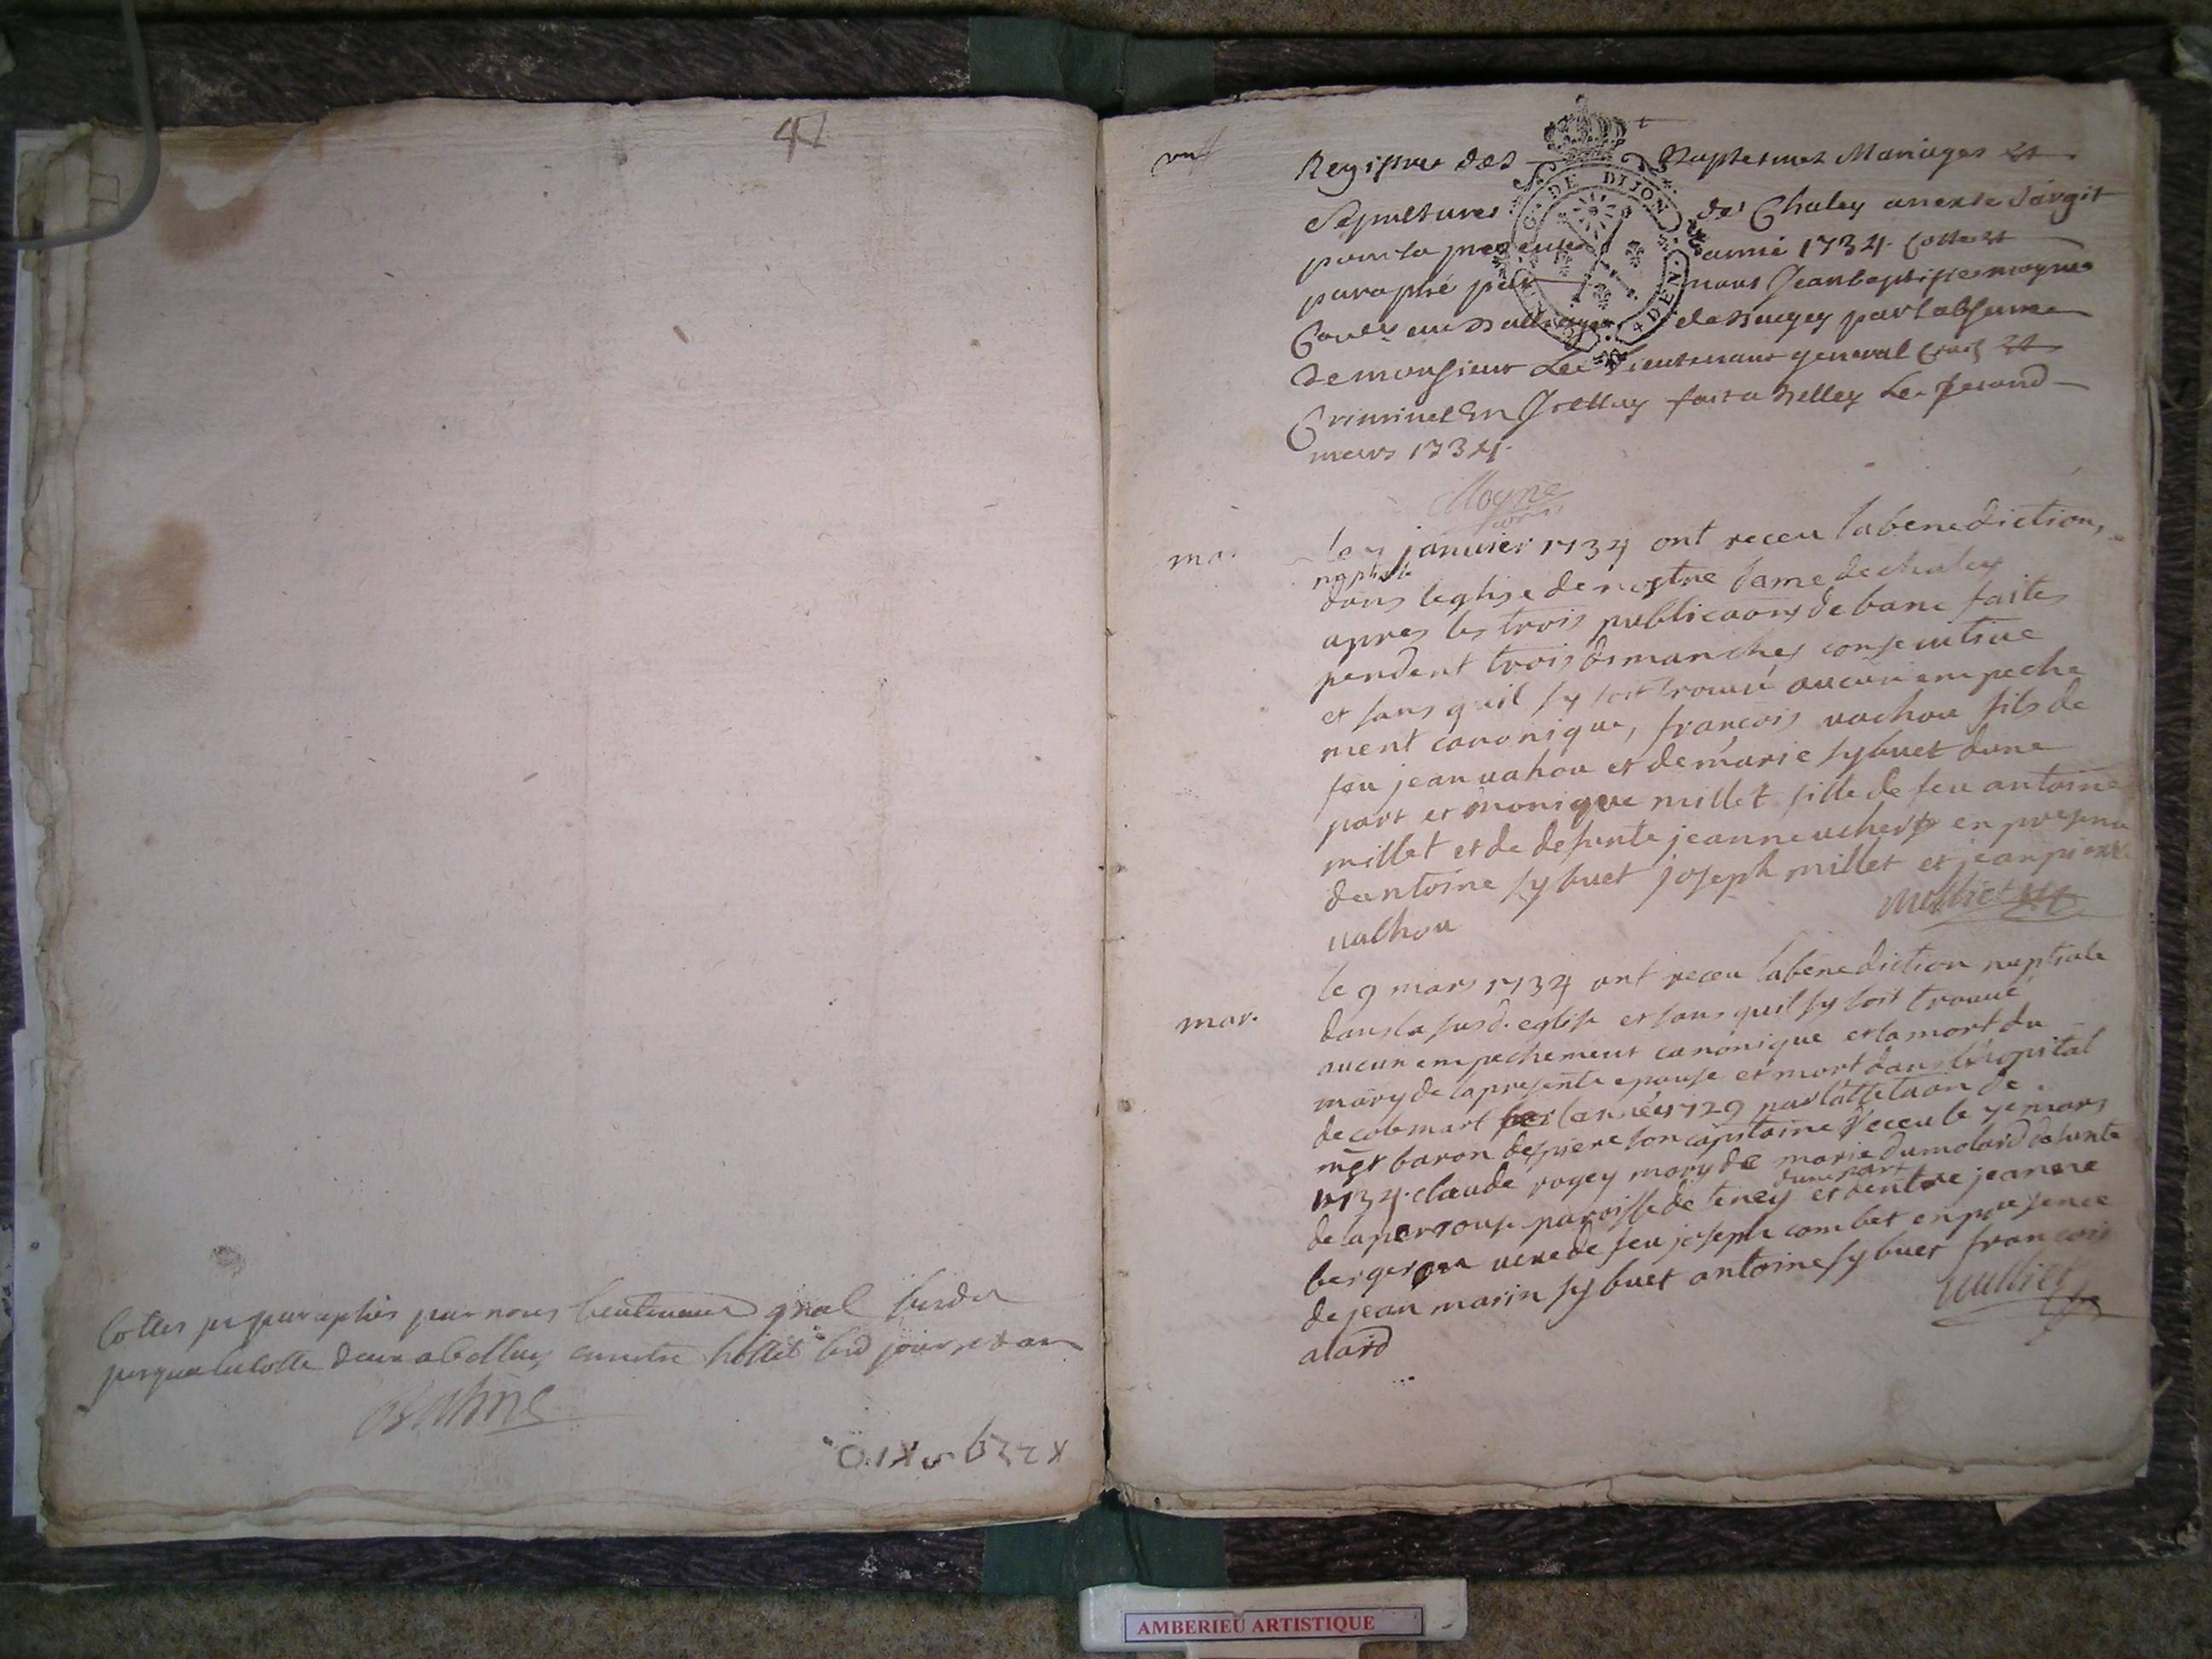 41
Cottes et paraphés par nous lieutenant gnal susdit
jusqua la cotte deux a Belley en notre hôtel led jour et an
Registre des Baptesmes Mariages et
Sepultures des Chaley anexe d'argit
pour la presente année 1734 Cotté et
paraphé par nous Jean baptiste moyne
Conser au Balliage de Bugey par l'absence
GDE DIJON
4 DEN
de monsieur Le Lieutenant general Civil et
Criminel En Icelluy fait a Belley Le second
mars 1734.
Moyne
ma.
le 7 janvier 1734 ont receu la benediction,
nuptiale
dans leglise de nostre dame de chaley
apres les trois publicaons de banc faites
pendent trois dimanches consecutive
et sans quil sy soit trouvé aucun empeche
ment canonique, francois vachou fils de
feu jean vahou et de marie sybuet dune
part et monique millet fille de feu antoine
millet et de defunte jeanne en presence
dantoine sybuet joseph millet et jean pierre
vachou
mar.
le 9 mars 1734 ont receu la benediction nuptiale
dans la susd. eglise et sans quil sy soit trouvé
aucun empechement canonique et la mort du
mary de la presente epouse et mort dans l'hopital
de colmart lannée 1729 par lattetaon de
mgr baron despiere son capitaine receu le 7e mars
1734. claude rogey mary de marie dumolard defunte
dune part
de la perrouse paroisse de teney et dentre jeanne
bergeron veve de feu joseph combet en presence
de jean marin sybuet antoine sybuet francois
alard
AMBERIEU ARTISTIQUE